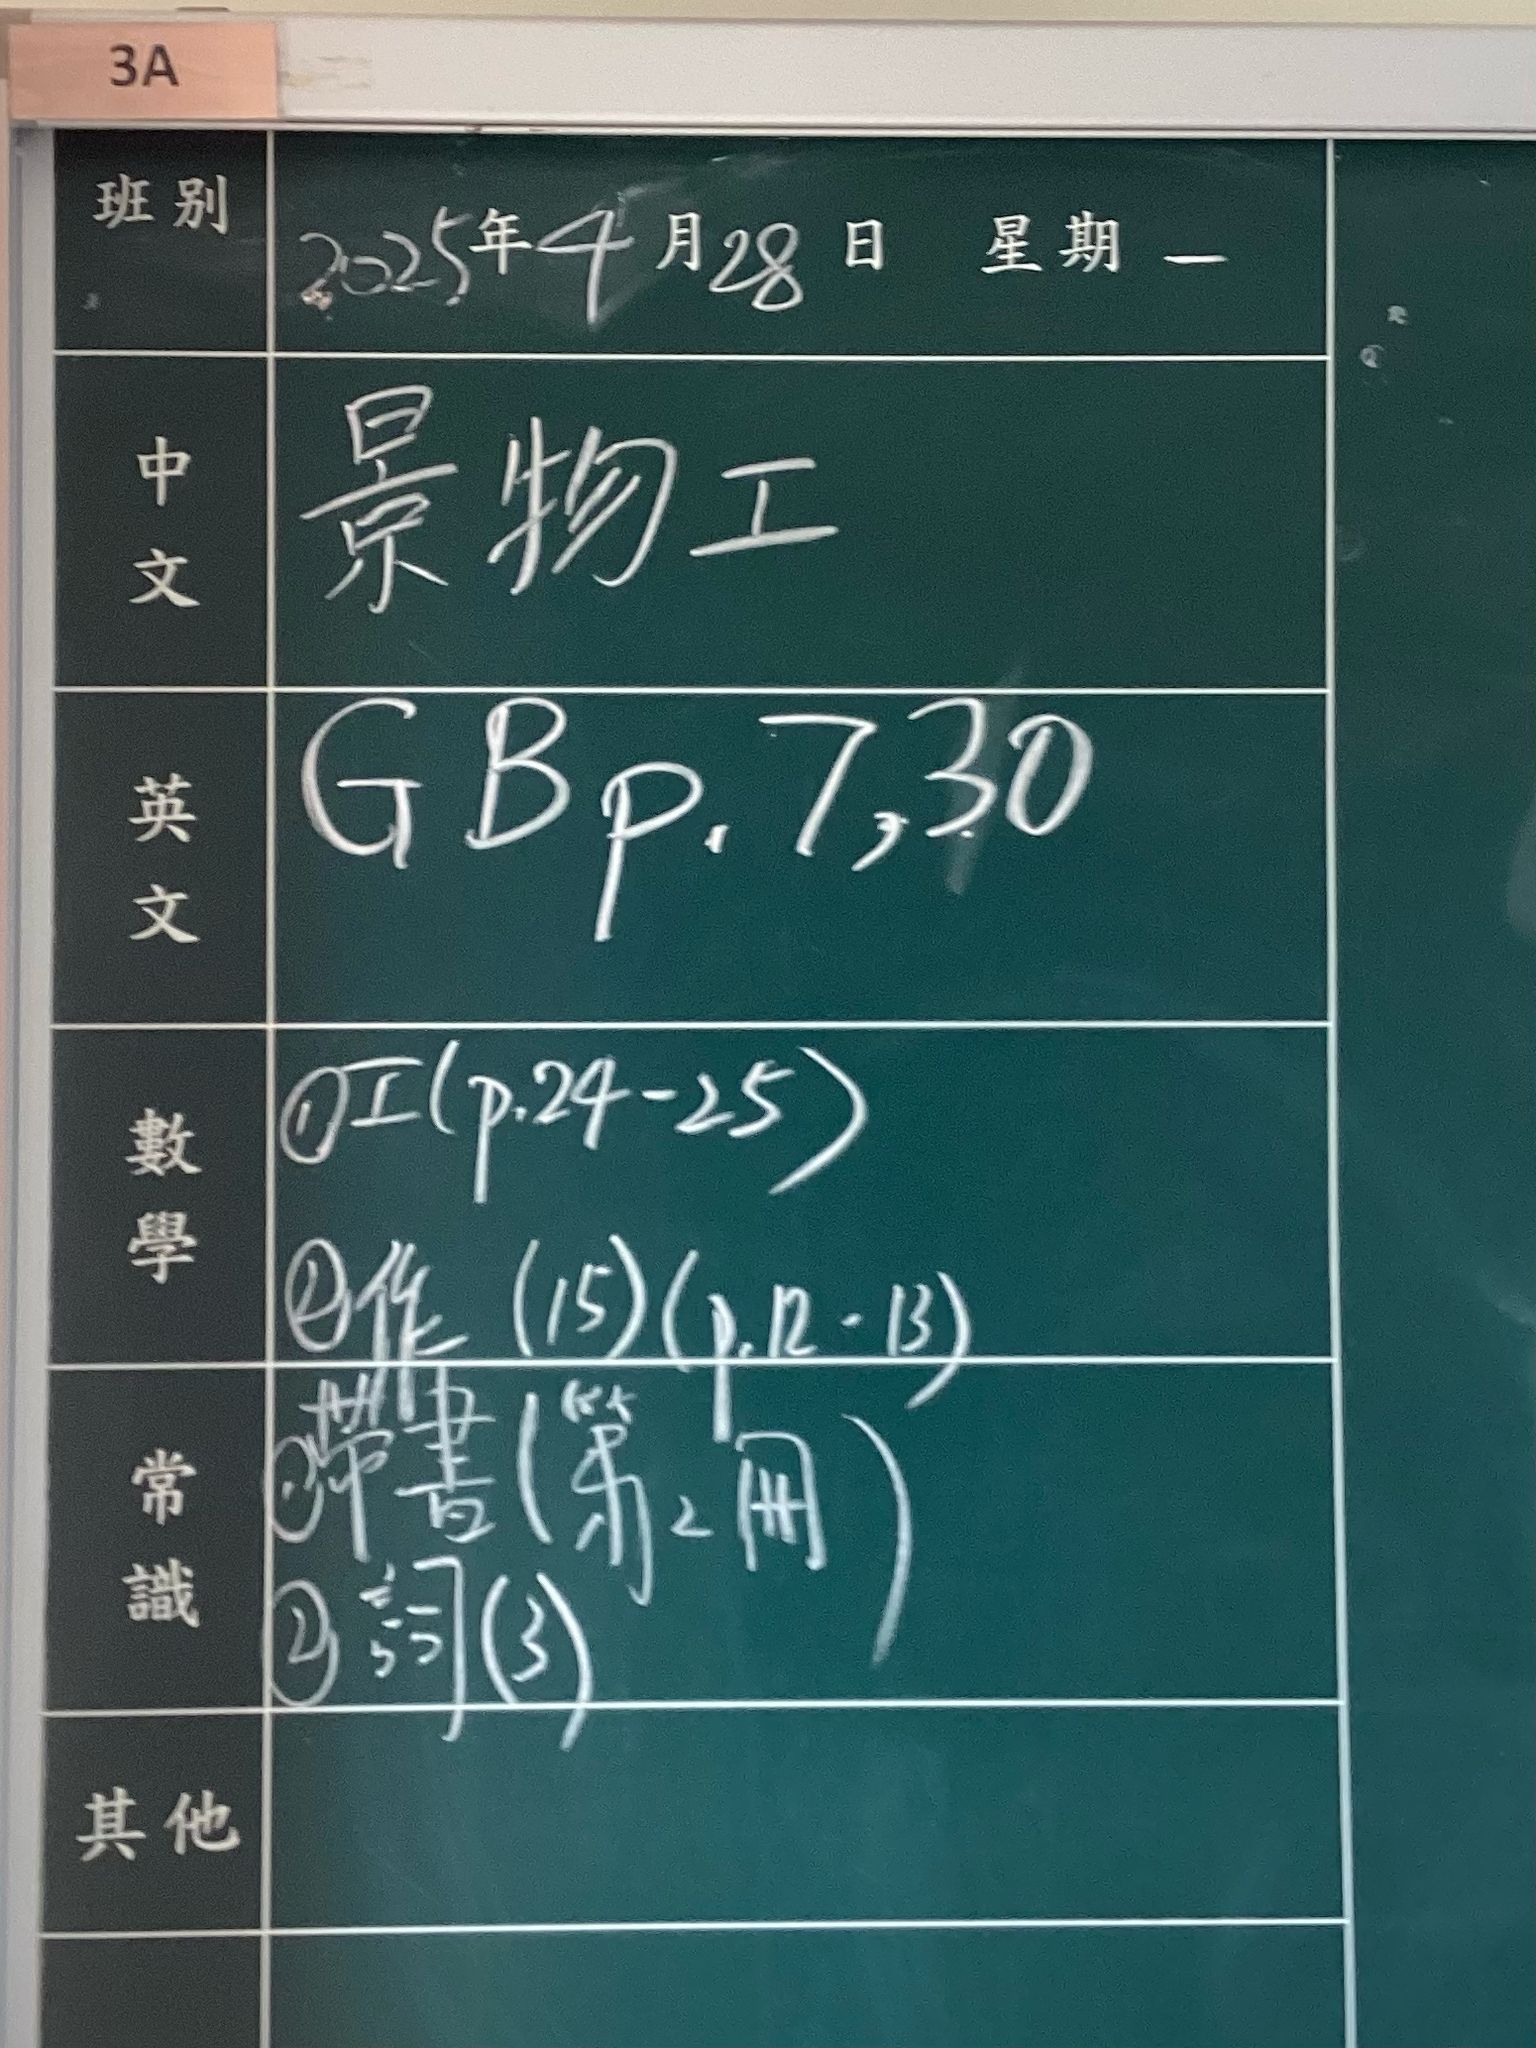 3A
班別
2025年4月28日 星期一
中文
景物工
英文
GB p.7,30
數學
①工(p.24-25)
②作 (15)(p.12-13)
常識
①帶書(第2冊)
②詞(3)
其他